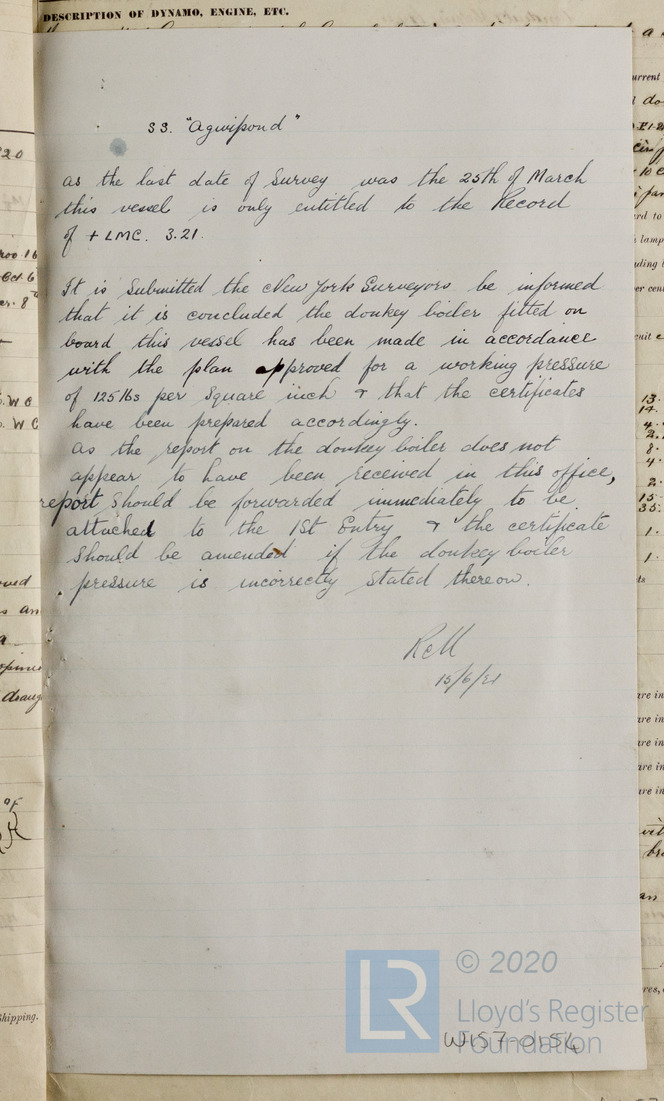 DESCRIPTION OF DYNAMO, ENGINE, ETC.
SS. "Agwipond"
as the last date of Survey was the 25th of March
this vessel is only entitled to the Record
of + LMC. 3.21.
It is submitted the New York Surveyors be informed
that it is concluded the donkey boiler fitted on
board this vessel has been made in accordance
with the plan approved for a working pressure
of 125 lbs per square inch & that the certificates
have been prepared accordingly.
as the report on the donkey boiler does not
appear to have been received in this office,
report should be forwarded immediately to be
attached to the 1st Entry & the certificate
should be amended if the donkey boiler
pressure is incorrectly stated thereon.
13/6/21
LR
© 2020
Lloyd's Register
Foundation
W157-0154
Shipping.